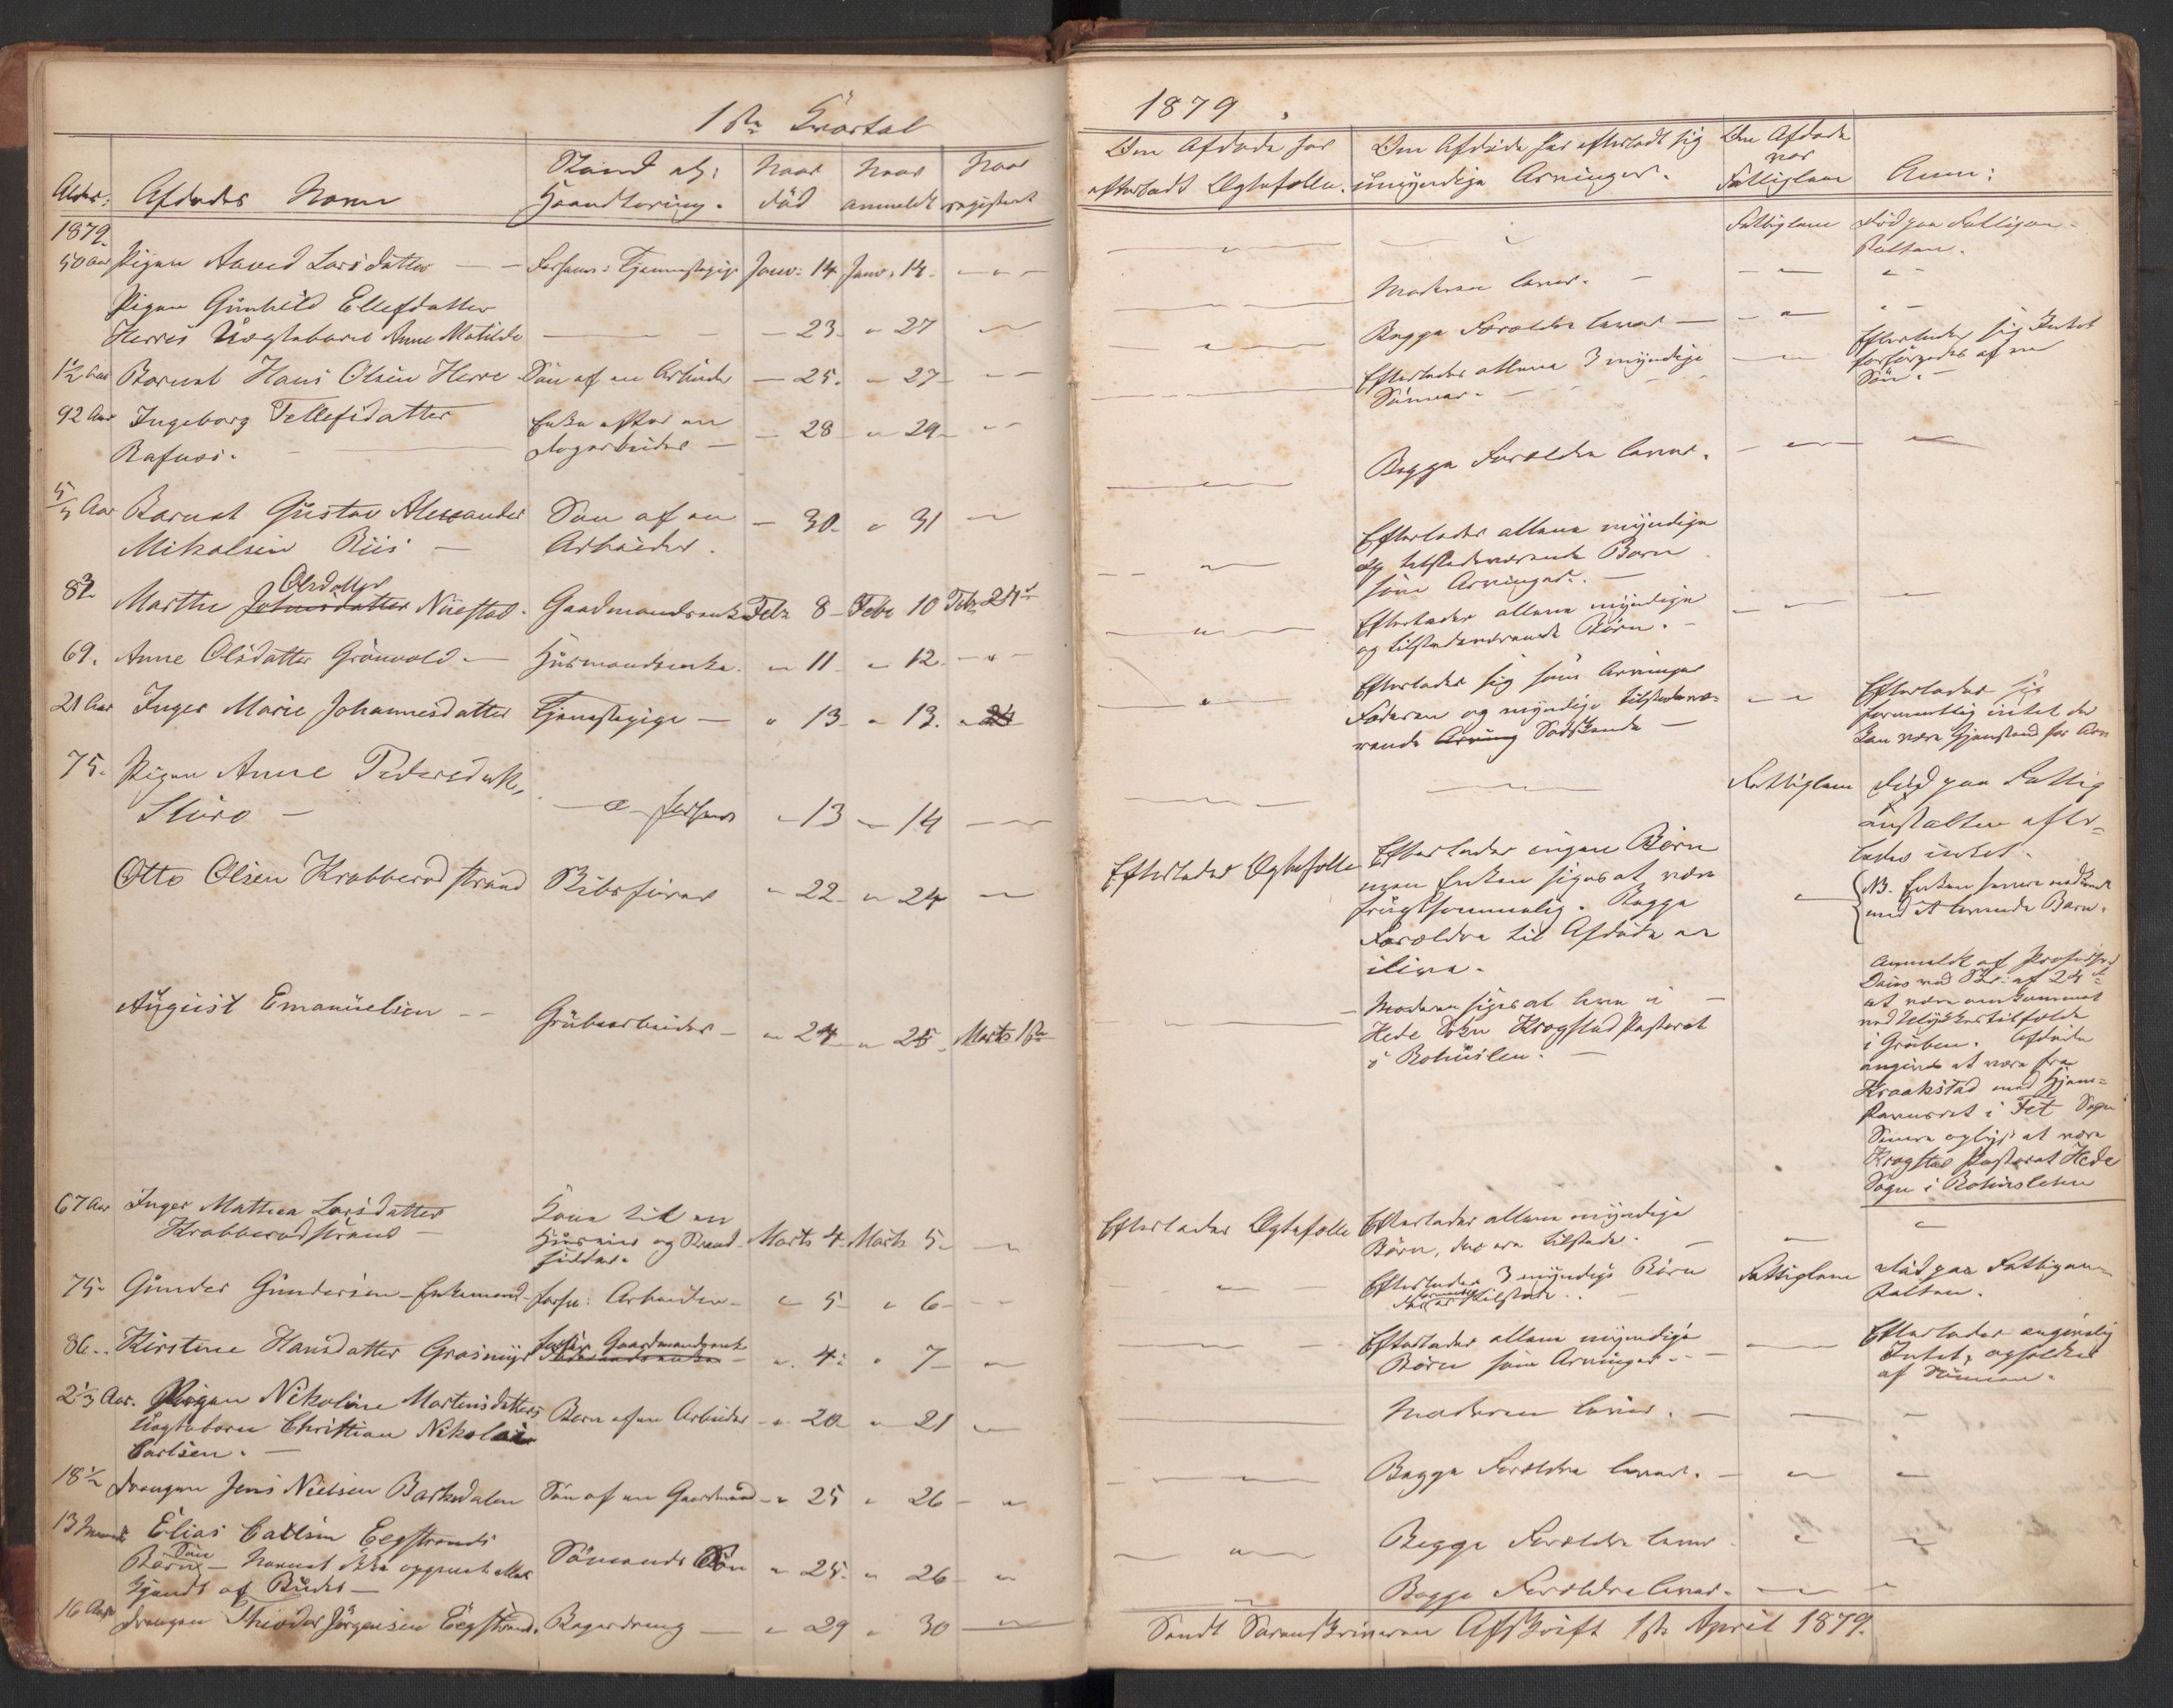 1ste Kvartal
Alder:
Afdødes Navn
Stand etc:
Haandtering.
Naar
død
Naar
anmeldt
Naar
registert
1879.
50 Aar Pigen Aaved Larsdatter — — Forhenv: Tjenestepige Janv: 14. Janv: 14. — " —
Pigen Gunhild Ellefsdatter
Herres Uægtebarn Anne Matilde — — 23. " 27 —
1½ Aar Barnet Hans Olsen Herre Søn af en Arbeider — 25. — 27 — —
92 Aar Ingeborg Tellefsdatter Enke efter en — 28 — " 29 — "
Rafnæs. — Dagarbeider —
Aar Barnet Gustav Alexander Søn af en — 30. " 31 —
Mikalsen Riis — Arbeider.
Olsdatter
82 Marthe Johnsdatter Nuestad. Gaardmandsenke Febr 8 — Febr 10 Febr 24de
69. Anne Olsdatter Grönvold. — Husmandsenke. " 11 — " 12. — " —
21 Aar Inger Marie Johannesdatter Tjenestepige — " 13 — " 13. " 24
75. Pigen Anne Pedersdatr,
— " forhenv " 13 — 14 — —
Otto Olsen Krabberødstrand " 22 — " 24 —
August Emanuelsen — — Grubearbeider — " 24 — " 25. Marts 1ste
67 Aar Inger Mathea Larsdatter Kone til en
Krabberødstrand — Huseier og Strand- Marts 4. Marts 5. —
sidder.
75. Gunder Gundersen — Enkemand forhv: Arbeider — " 5 — " 6 — —
86. Kirstine Hansdatter Grasmyr Gaardmandsenke — " 4. " 7 — "
2⅓ Aar. Pigen Nikoline Martinsdatters Barn af en Arbeider — " 20 — " 21 —
Uægtebarn Christian Nikolai
Carlsen. —
18½ Drengen Jens Nielsen Barkedalen Søn af en Gaardmand — " 25 " 26 — "
13 Elias Carlsen Eegstrands
Søn
Barn — Navnet ikke opgivet eller Sømands Søn " 25. " 26 — "
kjendt af Budet —
16 Aar Drengen Theodor Jörgensen Eegstrand. Bagerdreng — " 29 " 30 —
1879
Om Afdøde har
efterladt Ægtefælle.
Om Afdøde har efterladt sig
umyndige Arvinger.
Om Afdøde
var
Fattiglem
Anm:
Fattiglem Død paa Fattigan-
stalten.
Moderen lever. —
Begge Forældre lever —
Efterlader allene 3 myndige
Sönner. —
Efterlader sig Intet
forsørgedes af en
Søn. —
Begge Forældre lever.
Efterlader allene myndige
og tilstedeværende Børn
som Arvinger. —
Efterlader allene myndige
og tilstedeværende Børn. —
Efterlader sig som Arvinger
Faderen og myndige tilstedevæ-
rende Arving Sødskende —
Efterlader sig
formentlig intet der
kan være Gjenstand for Arv
Fattiglem Død paa Fattig
anstalten efter-
lader intet.
Efterlader Ægtefælle Efterlader ingen Børn
men Enken siges at være
frugtsommelig. Begge
Forældre til Afdøde er
ilive.
NB. Enken senere nedkommet
med et levende Barn.
Moderen siges at leve i —
Hede Sokn Krogstad Pastorat
i Bohuslen. —
Anmeldt af
ved Skr. af 24de
at være omkommet
ved Ulykkestilfælde
i Gruben. Afdøde
angives at være fra
Kraakstad med Hjem-
stavnsret i Fet Sogn
Senere oplyst at være
Krogstad Pastorat Hede
Sogn i Bohuslehn
Efterlader Ægtefælle Efterlader allene myndige
Børn, der ere tilstede. —
Efterlader 3 myndige Børn Fattiglem Død paa Fattigan-
tilstede. stalten.
Efterlader allene myndige
Børn som Arvinger. —
Efterlader angivelig
Intet, opholdtes
af Sønnen.
Moderen lever. —
Begge Forældre lever. —
Begge Forældre lever
Begge Forældre lever. —
Sendt Sorenskriveren Afskrift 1ste April 1879.